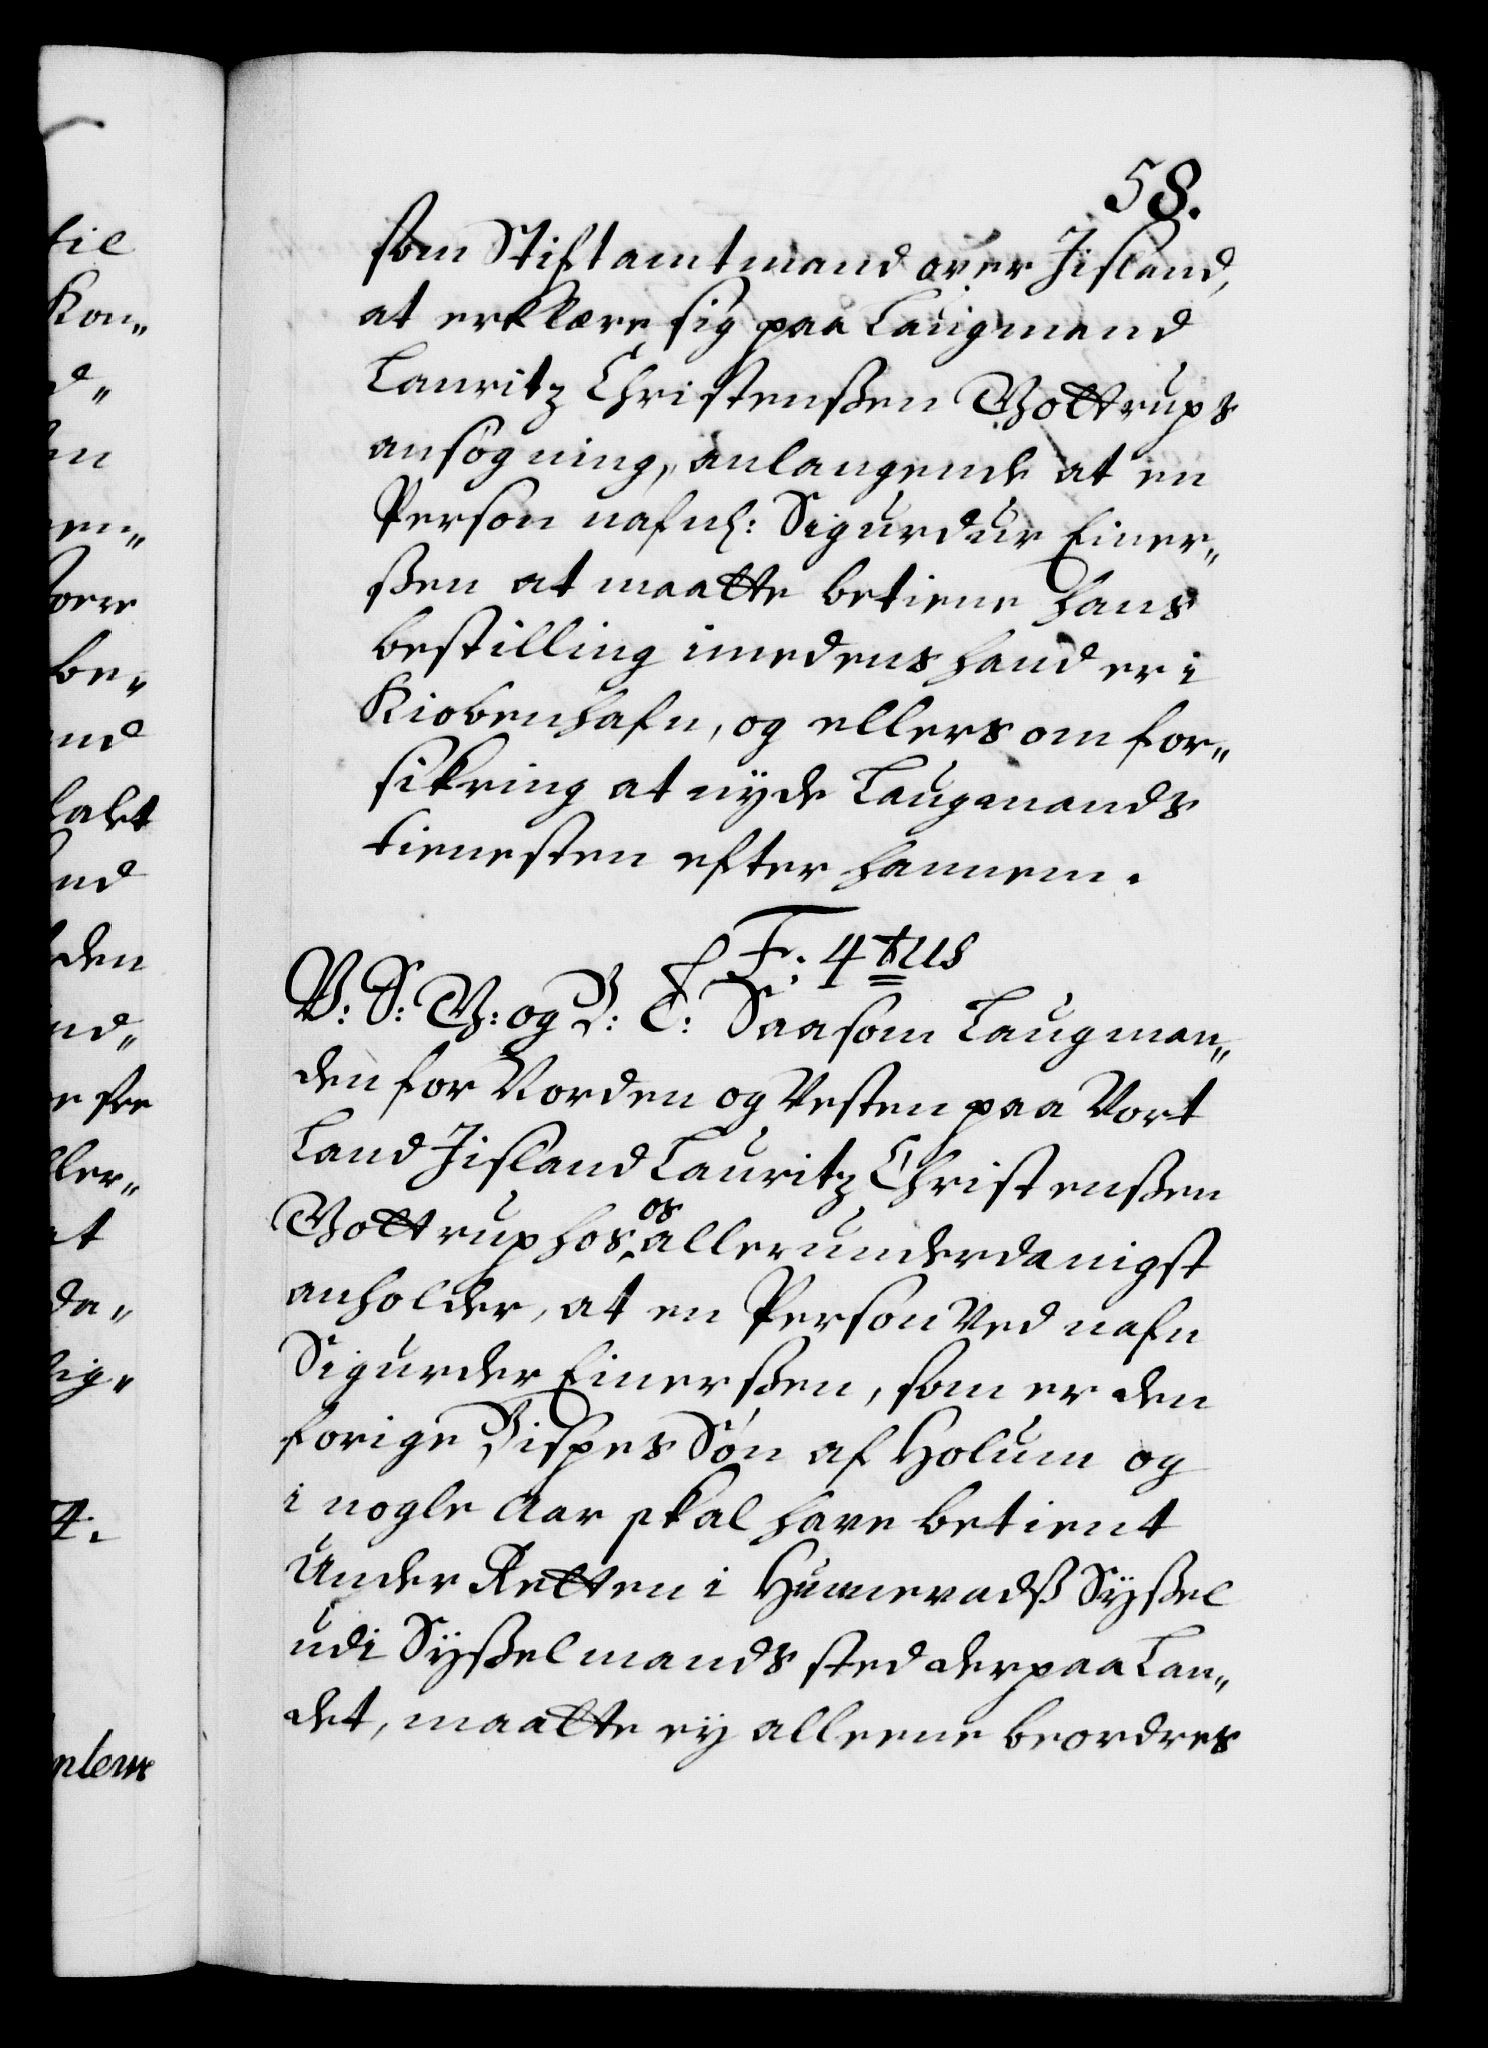 58.
som Stiftamtmand over Jisland,
at erklære sig paa Laugmand
Lauritz Christenßen Gottrups
ansøgning, anlangende at en
Person nafnl: Sigurdur Einer„
ßen at maatte betiene hans
bestilling imedens hand er i
Kiobenhafn, og ellers om for„
sikring at nyde Laugmands
tienesten efter hannem.
F: 4tus
V: S: G: og B: T: Saasom Laugman„
den for Norden og Vesten paa Vort
Land Jisland Lauritz Christenßen
Gottrup hos os allerunderdanigst
anholder, at en Person ved nafn
Sigurder Einerßen, som er den
forige Bispes Søn af Holum og
i nogle Aar skal have betient
Under Retten i Hunevadß Syßel
udi Syßelmands sted der paa Lan„
det, maatte ey alleene beordres
til
Kon„
d„
en„
be„
and
den
nd„
ller„
at
da„
lig„
4.